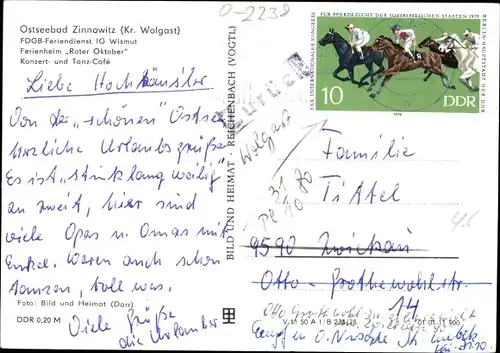 O-2238
Ostseebad Zinnowitz (Kr. Wolgast)
FDGB-Feriendienst IG Wismut
Ferienheim „Roter Oktober"
Konzert- und Tanz-Café
Liebe Hochhäusler
Von der „schönen" Ostsee
herzliche Urlaubsgrüße
Es ist „stinklangweilig"
an zweit, hier sind
viele Opas u. Omas mit
Enkel. Waren auch schon
tanzen, toll was.
Foto: Bild und Heimat (Darr)
DDR 0,20 M
Viele Grüße
die Urlauber
BILD UND HEIMAT · REICHENBACH (VOGTL)
V 11 50 A 1/B 238/78 01 01 11 900
XXII. INTERNATIONALER KONGRESS FÜR PFERDEZUCHT DER SOZIALISTISCHEN STAATEN 1978
BERLIN · HAUPTSTADT DER DDR
10
1978
DDR
Zurück
Wolgast
31
10
80
Familie
Tittel
9590 Zwickau
Otto-Grothewohlstr.
14